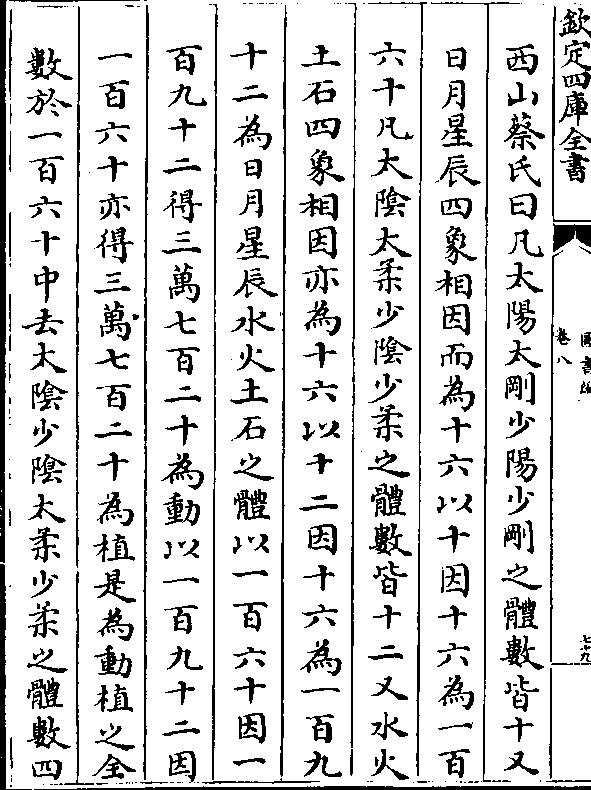 欽定四庫全書
圖書編
卷八
七十九
西山蔡氏曰凡太陽太剛少陽少剛之體數皆十又
日月星辰四象相因而為十六以十因十六為一百
六十凡太陰太柔少陰少柔之體數皆十二又水火
土石四象相因亦為十六以十二因十六為一百九
十二為日月星辰水火土石之體以一百六十因一
百九十二得三萬七百二十為動以一百九十二因
一百六十亦得三萬七百二十為植是為動植之全
數於一百六十中去太陰少陰太柔少柔之體數四